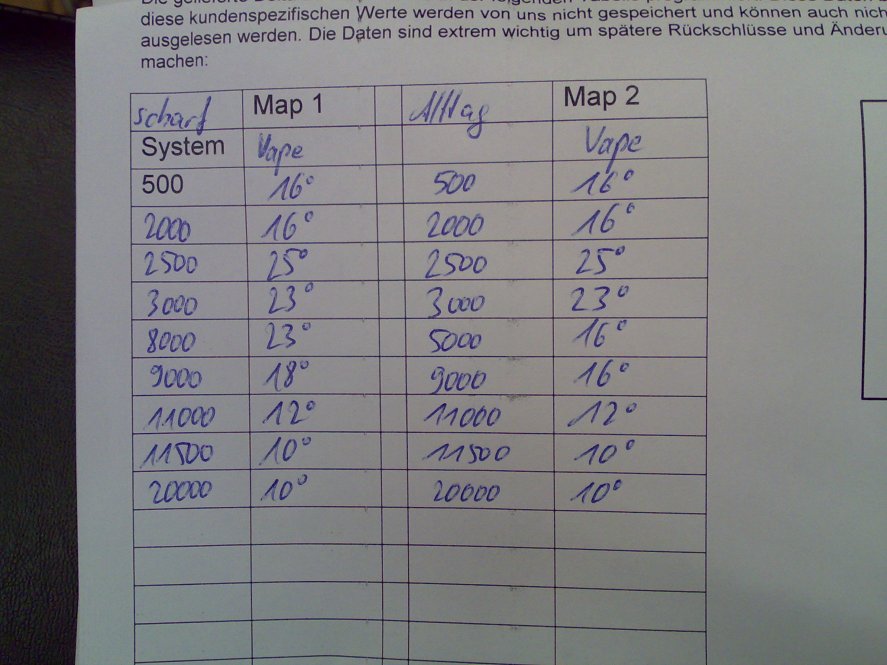 diese kundenspezifischen Werte werden von uns nicht gespeichert und können auch nich
ausgelesen werden. Die Daten sind extrem wichtig um spätere Rückschlüsse und Änderu
machen:
scharf Map 1 Alltag Map 2
System Vape Vape
500 16° 500 16°
2000 16° 2000 16°
2500 25° 2500 25°
3000 23° 3000 23°
8000 23° 5000 16°
9000 18° 9000 16°
11000 12° 11000 12°
11500 10° 11500 10°
20000 10° 20000 10°